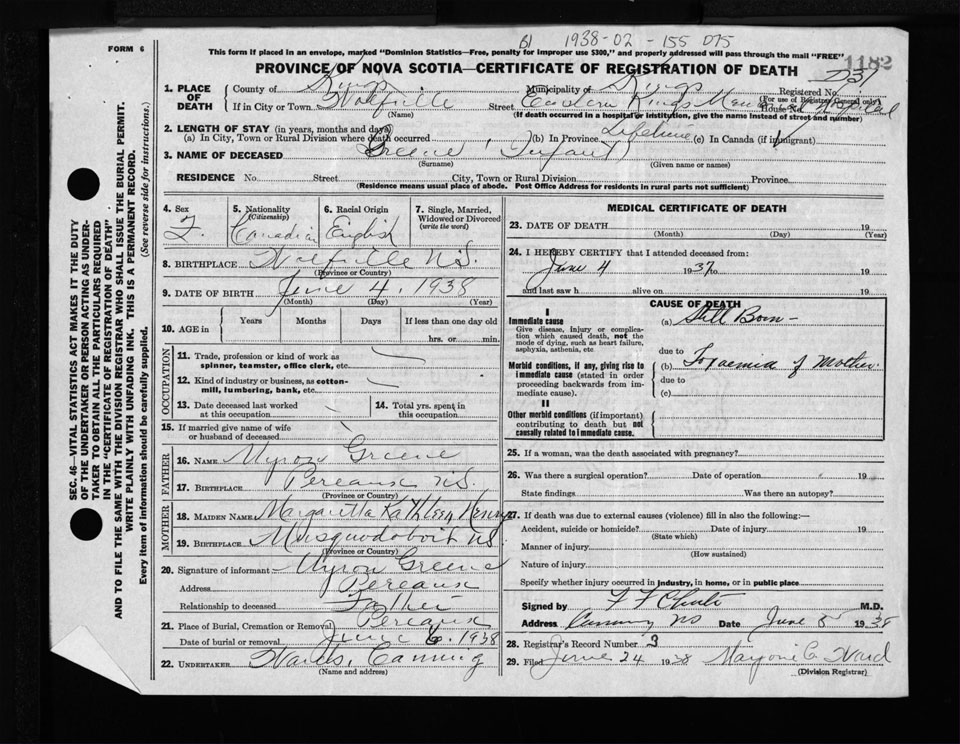 B1 1938-02-155 075
FORM 6
This form if placed in an envelope, marked "Dominion Statistics—Free, penalty for improper use $300," and properly addressed will pass through the mail "FREE"
1182
PROVINCE OF NOVA SCOTIA—CERTIFICATE OF REGISTRATION OF DEATH
1. PLACE OF DEATH County of Kings Municipality of Kings Registered No.
(For use of Registrar General only)
If in City or Town Wolfville Street Eastern Kings Memorial Hospital House No.
(Name) (If death occurred in a hospital or institution, give the name instead of street and number)
2. LENGTH OF STAY (in years, months and days)
(a) In City, Town or Rural Division where death occurred (b) In Province Lifetime (c) In Canada (if immigrant)
3. NAME OF DECEASED Greene, Infant
(Surname) (Given name or names)
RESIDENCE No. Street City, Town or Rural Division Province
(Residence means usual place of abode. Post Office Address for residents in rural parts not sufficient)
4. Sex F.
5. Nationality (Citizenship) Canadian
6. Racial Origin English
7. Single, Married, Widowed or Divorced (write the word)
8. BIRTHPLACE Wolfville N.S.
(Province or Country)
9. DATE OF BIRTH June 4, 1938
(Month) (Day) (Year)
10. AGE in Years Months Days If less than one day old
hrs. or min.
OCCUPATION
11. Trade, profession or kind of work as spinner, teamster, office clerk, etc.
12. Kind of industry or business, as cotton-mill, lumbering, bank, etc.
13. Date deceased last worked at this occupation
14. Total yrs. spent in this occupation
15. If married give name of wife or husband of deceased
FATHER
16. NAME Myron Greene
17. BIRTHPLACE Pereaux N.S.
(Province or Country)
MOTHER
18. MAIDEN NAME Margaretta Kathleen Henry
19. BIRTHPLACE Musquodoboit N.S.
(Province or Country)
20. Signature of informant Myron Greene
Address Pereaux
Relationship to deceased Father
21. Place of Burial, Cremation or Removal Pereaux
Date of burial or removal June 6, 1938
22. UNDERTAKER Canning
(Name and address)
MEDICAL CERTIFICATE OF DEATH
23. DATE OF DEATH 19
(Month) (Day) (Year)
24. I HEREBY CERTIFY that I attended deceased from:
June 4 1937 to 19
and last saw h alive on 19
CAUSE OF DEATH
I
Immediate cause (a) Still Born—
Give disease, injury or complication which caused death, not the mode of dying, such as heart failure, asphyxia, asthenia, etc
due to
Morbid conditions, if any, giving rise to immediate cause (stated in order proceeding backwards from immediate cause).
(b) Toxaemia of Mother.
due to
(c)
II
Other morbid conditions (if important) contributing to death but not causally related to immediate cause.
25. If a woman, was the death associated with pregnancy?
26. Was there a surgical operation? Date of operation 19
State findings Was there an autopsy?
27. If death was due to external causes (violence) fill in also the following:—
Accident, suicide or homicide? Date of injury 19
(State which)
Manner of injury
(How sustained)
Nature of injury
Specify whether injury occurred in industry, in home, or in public place
Signed by F F Chute M.D.
Address Canning NS Date June 8 1938
28. Registrar's Record Number 3
29. Filed June 24 1938 Marjorie C. Ward
(Division Registrar)
SEC. 46—VITAL STATISTICS ACT MAKES IT THE DUTY
OF THE UNDERTAKER OR PERSON ACTING AS UNDER-
TAKER TO OBTAIN ALL THE PARTICULARS REQUIRED
IN THE "CERTIFICATE OF REGISTRATION OF DEATH"
AND TO FILE THE SAME WITH THE DIVISION REGISTRAR WHO SHALL ISSUE THE BURIAL PERMIT.
WRITE PLAINLY WITH UNFADING INK. THIS IS A PERMANENT RECORD.
Every item of information should be carefully supplied. (See reverse side for instructions.)